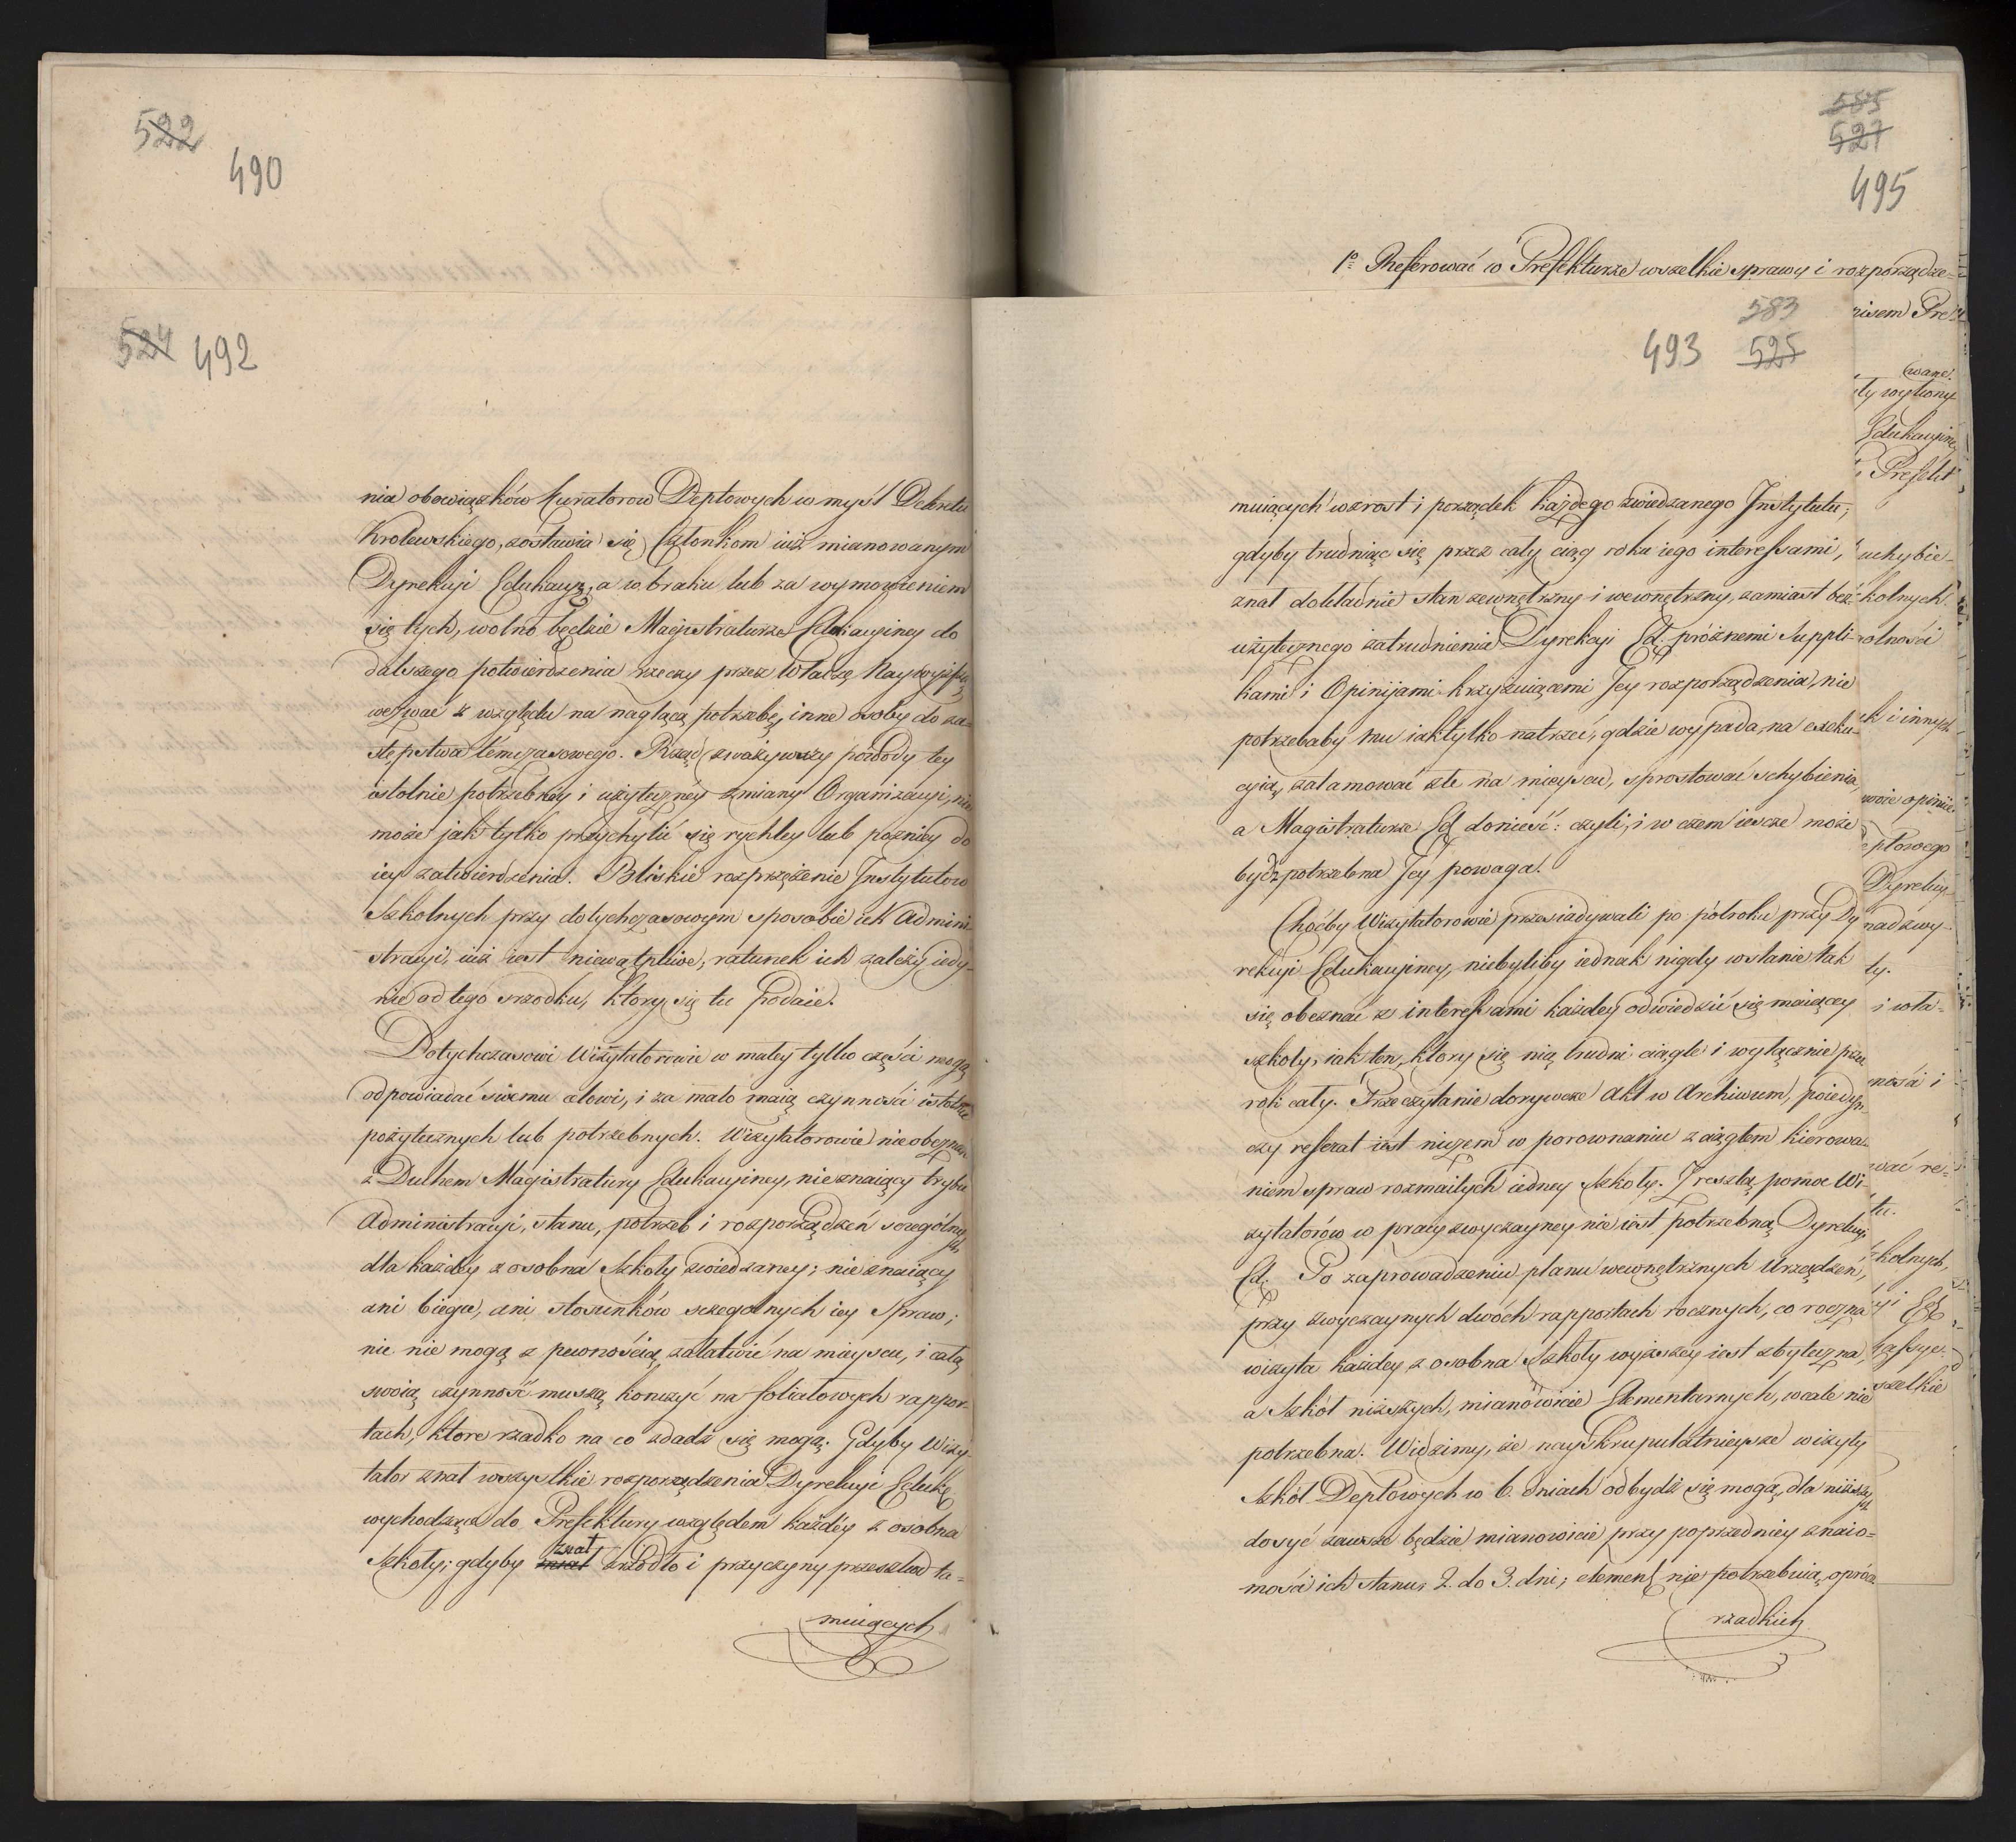 522
490
524 492
nia obowiązków Kuratorow Deptowych w myśl Dekretu
Krolewskiego, zostawia się Członkom iuż mianowanym
Dyrekcyi Edukacyi, a w braku lub za wymowieniem
się tych, wolno będzie Magistraturze Edukacyiney do
dalszego potwierdzenia rzeczy przez Władzę Naywyższą
wezwać z względu na naglącą potrzebę, inne osoby do za-
stępstwa témczasowego. Rząd zważywszy powody tey
istotnie potrzebney i użyteczney zmiany Organizacyi, nie
może jak tylko przychylić się rychley lub pozniey do
iey zatwierdzenia. Bliskie rozprzężenie Instytutow
Szkolnych przy dotychczasowym sposobie ich Admini-
stracyi, iuż iest niewątpliwe, ratunek ich zależy iedy-
nie od tego srzodku, ktory się tu podaie.
Dotychczasowi Wizytatorowie w małey tylko części mogą
odpowiadać swemu celowi, i za mało maią czynności istotnie
pożytecznych lub potrzebnych. Wizytatorowie nieobeznani
z Duchem Magistratury Edukacyiney, nieznaiący trybu
Administracyi, stanu, potrzeb i rozporządzeń szczególnych
dla każdéy z osobna Szkoły zwiedzaney; nieznaiący
ani biegu, ani stosunków szczegolnych iey Spraw;
nic nie mogą z pewnością załatwić na mieyscu, i całą
swoią czynność muszą konczyć na foliałowych rappor-
tach, ktore rzadko na co zdadź się mogą. Gdyby Wizy-
tator znał wszystkie rozporządzenia Dyrekcyi Eduk.
wychodzące do Prefektury względem każdéy z osobna
Szkoły; gdyby znał źrzodło i przyczyny przeszkod ta-
muiących
585
527
495
1o Referować w Prefekturze wszelkie sprawy i rozporządze-
583
493 525
muiących wzrost i porządek każdego zwiedzanego Instytutu;
gdyby trudniąc się przez cały ciąg roku iego interessami,
znał dokładnie stan zewnętrzny i wewnętrzny, zamiast bez-
użytecznego zatrudnienia Dyrekcyi Ed. próżnemi Suppli-
kami i Opinijami krzyżuiącemi Jey rozporządzenia, nie
potrzebaby mu iak tylko natrzeć, gdzie wypada, na exeku-
cyią, zatamować złe na mieyscu, sprostować uchybienia,
a Magistraturze Ed. donieść: czyli, i w czem ieszcze może
bydź potrzebna Jey powaga.
Choćby Wizytatorowie przesiadywali po pótroku przy Dy-
rekcyi Edukacyiney, niebyliby iednak nigdy w stanie tak
się obeznać z interessami każdey odwiedzić się maiącey
szkoły, iak ten, ktory się nią trudni ciągle i wyłącznie przez
rok cały. Przeczytanie dorywcze Akt w Archiwum, poiedyn-
czy referat iest niczem w porownaniu z ciągłem kierowa-
niem spraw rozmaitych iedney Szkoły. Zresztą pomoc Wi-
zytatorów w pracy zwyczayney nie iest potrzebną Dyrekcyi
Ed. Po zaprowadzeniu planu wewnętrznych Urządzeń,
przy zwyczaynych dwóch rapportach rocznych, co roczna
wizyta każdey z osobna Szkoły wyższey iest zbyteczna,
a Szkół niższych, mianowicie Elementarnych, wcale nie
potrzebna. Widzimy, że nayskrupulatnieysze wizyty
Szkół Deptowych w 6. dniach odbydź się mogą, dla niższych
dosyć zawsze będzie mianowicie przy poprzedniey znaio-
mości ich stanu, 2. do 3. dni; element. nie potrzebuią, oprócz
rzadkich
pisem Pre
ty wytkony
Edukacyine
Prefekt
uchybie-
kolnych.
olności
k i innych
swoie opinie
ptowego
Dyrekcy-
nadzwy-
ty.
i wła-
ności i
wać re-
tu.
kolnych,
yi Ed.
szelkie